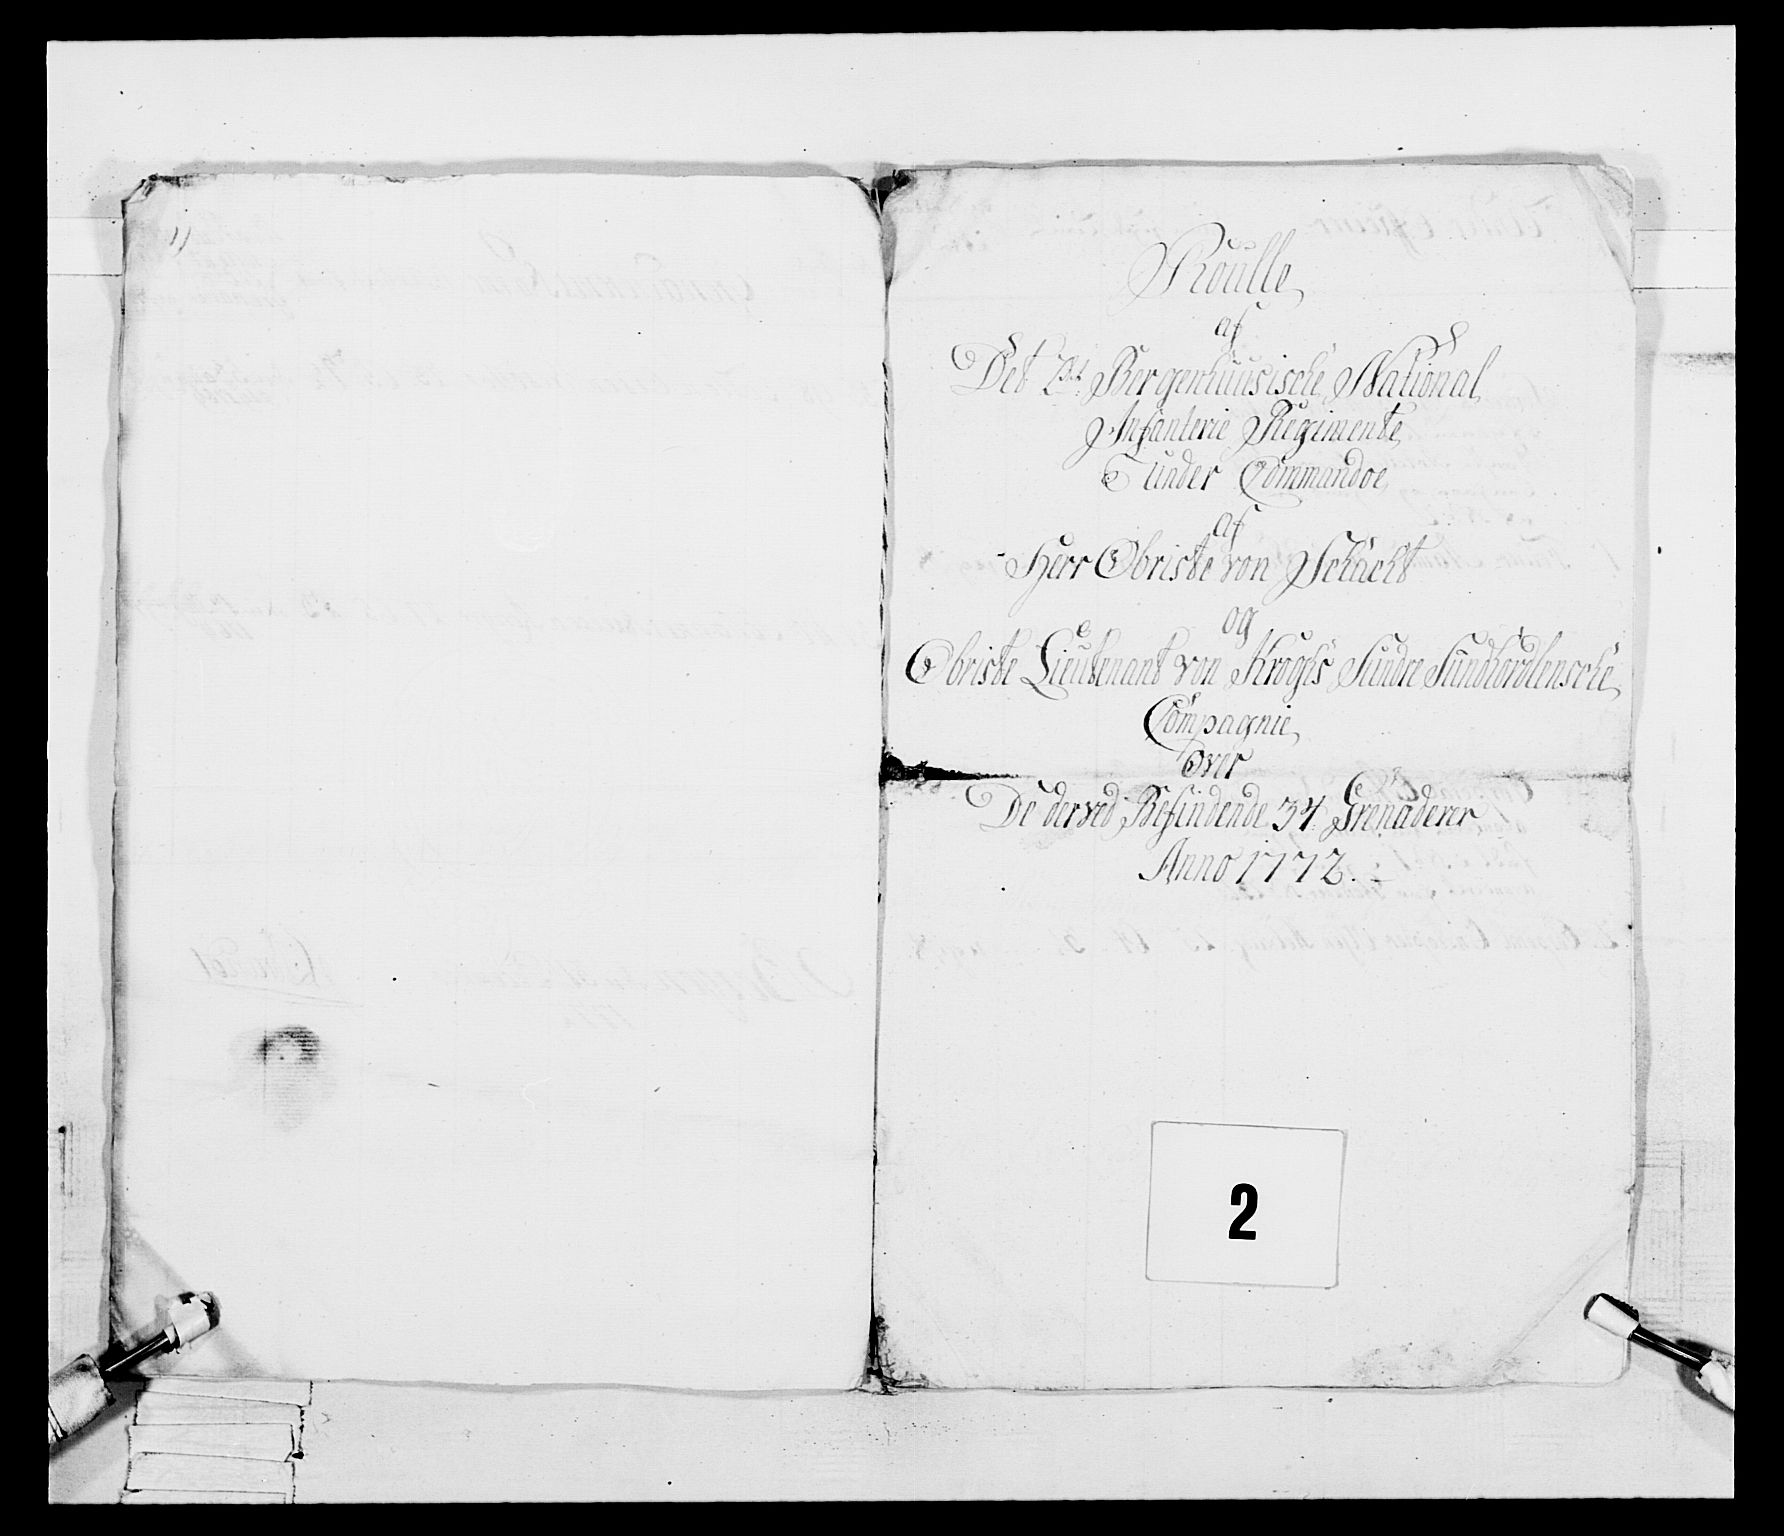 Roulle
af
Det 2det Bergenhuusische National
Infanterie Regimente
Under Commandoe
Af
Herr Obriste von Schacht
og
Obriste Lieutenant von Kroghs Sündre Sündhordlensche
Compagnie
Over
De derved Befindende 34 Grenaderer
Anno 1772.
2